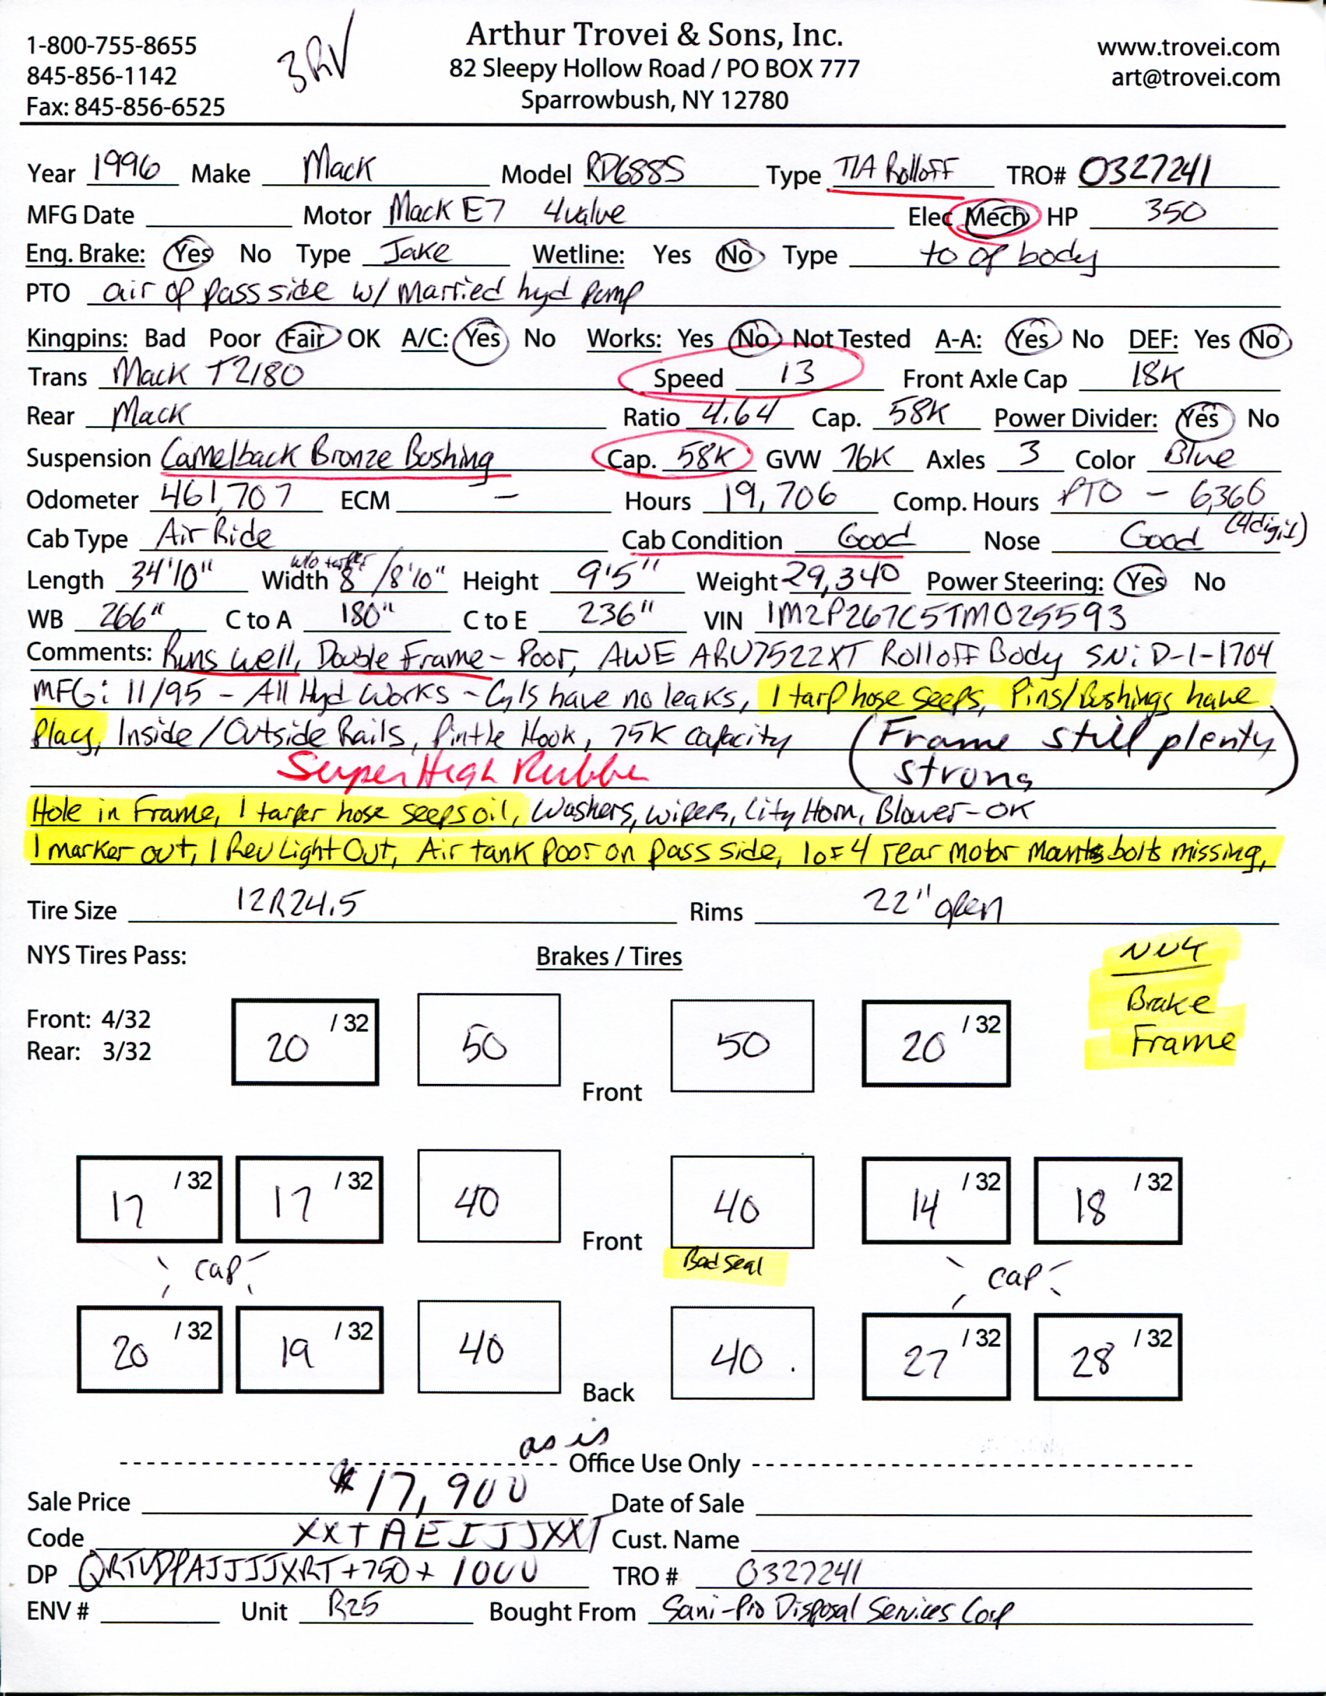 1-800-755-8655
845-856-1142
Fax: 845-856-6525
3RV
Arthur Trovei & Sons, Inc.
82 Sleepy Hollow Road / PO BOX 777
Sparrowbush, NY 12780
www.trovei.com
art@trovei.com
Year 1996 Make Mack Model RD688S Type T/A Rolloff TRO# 0327241
MFG Date Motor Mack E7 4valve Elec Mech HP 350
Eng. Brake: Yes No Type Jake Wetline: Yes No Type to op body
PTO air op pass side w/ married hyd pump
Kingpins: Bad Poor Fair OK A/C: Yes No Works: Yes No Not Tested A-A: Yes No DEF: Yes No
Trans Mack T2180 Speed 13 Front Axle Cap 18K
Rear Mack Ratio 4.64 Cap. 58K Power Divider: Yes No
Suspension Camelback Bronze Bushing Cap. 58K GVW 76K Axles 3 Color Blue
Odometer 461,707 ECM – Hours 19,706 Comp. Hours PTO - 6,366
(4digit)
Cab Type Air Ride Cab Condition Good Nose Good
w/o tarper
Length 34'10" Width 8' /8'10" Height 9'5" Weight 29,340 Power Steering: Yes No
WB 266" C to A 180" C to E 236" VIN 1M2P267C5TM025593
Comments: Runs well, Double Frame - Poor, AWE ARU7522XT Rolloff Body SN: D-1-1704
MFG: 11/95 - All Hyd Works - Cyls have no leaks, 1 tarp hose seeps, Pins/Bushings have
play, Inside/Outside Rails, Pintle Hook, 75K capacity (Frame still plenty
strong)
Super High Rubber
Hole in Frame, 1 tarper hose seeps oil, Washers, wipers, City Horn, Blower-OK
1 marker out, 1 Rev Light Out, Air tank poor on pass side, 1 of 4 rear motor mounts bolts missing,
Tire Size 12R24.5 Rims 22" open
NYS Tires Pass: Brakes / Tires
Front: 4/32
Rear: 3/32
Brake
Frame
20 /32 50 50 20 /32
Front
17 /32 17 /32 40 40 14 /32 18 /32
Front
Bad seal
cap cap
20 /32 19 /32 40 40 27 /32 28 /32
Back
as is
Office Use Only
Sale Price $17,900 Date of Sale
Code XXTAEIJJXXT Cust. Name
DP QRTVDPAJJJJXRT+750+1000 TRO # 0327241
ENV # Unit R25 Bought From Sani-Pro Disposal Services Corp